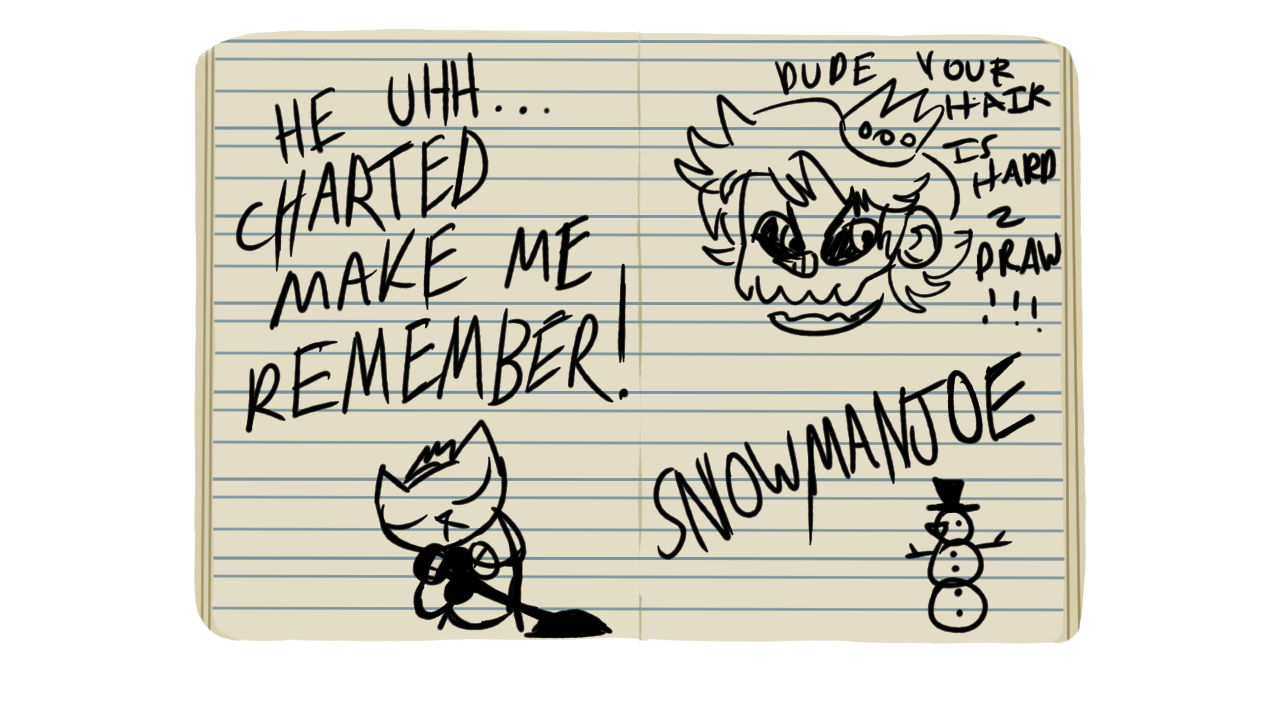 HE UHH...
CHARTED
MAKE ME
REMEMBER!
DUDE YOUR
HAIR
IS
HARD
2
DRAW
!!!
SNOWMANJOE